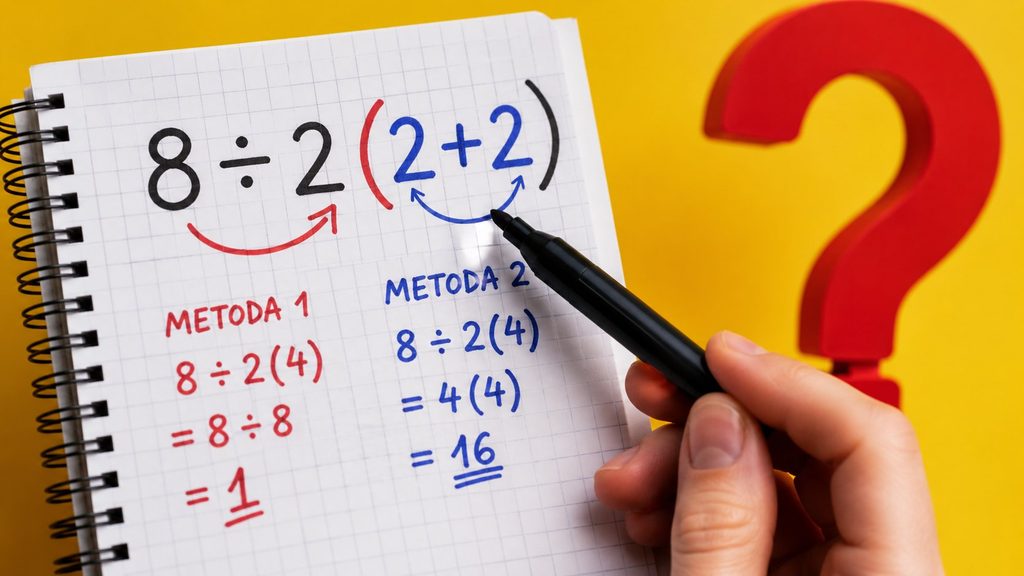 8 ÷ 2 (2 + 2)
METODA 1
8 ÷ 2(4)
= 8 ÷ 8
= 1
METODA 2
8 ÷ 2(4)
= 4(4)
= 16